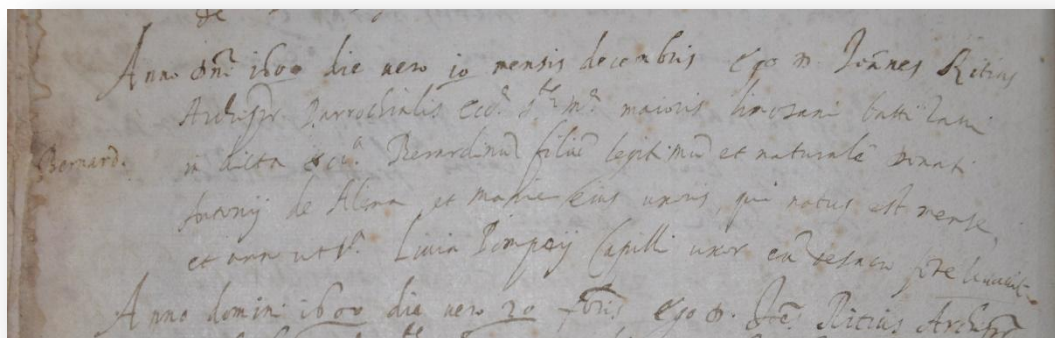 Anno dni 1600 die vero 10 mensis decembris Ego D. Joannes Ritius
Archipr Parrochialis ecc. Ste Me maioris limosani battizavi
Bernard.
in dicta ecc. Berardinu filiu legitimu et naturale
Antonij de et Marie eius uxoris, qui natus est mense,
et anno ut sa. Livia Pompeij Capilli uxor eu de sacro fote levavit
Anno domini 1600 die vero 20 Ego D. Joes Ritius Archipr